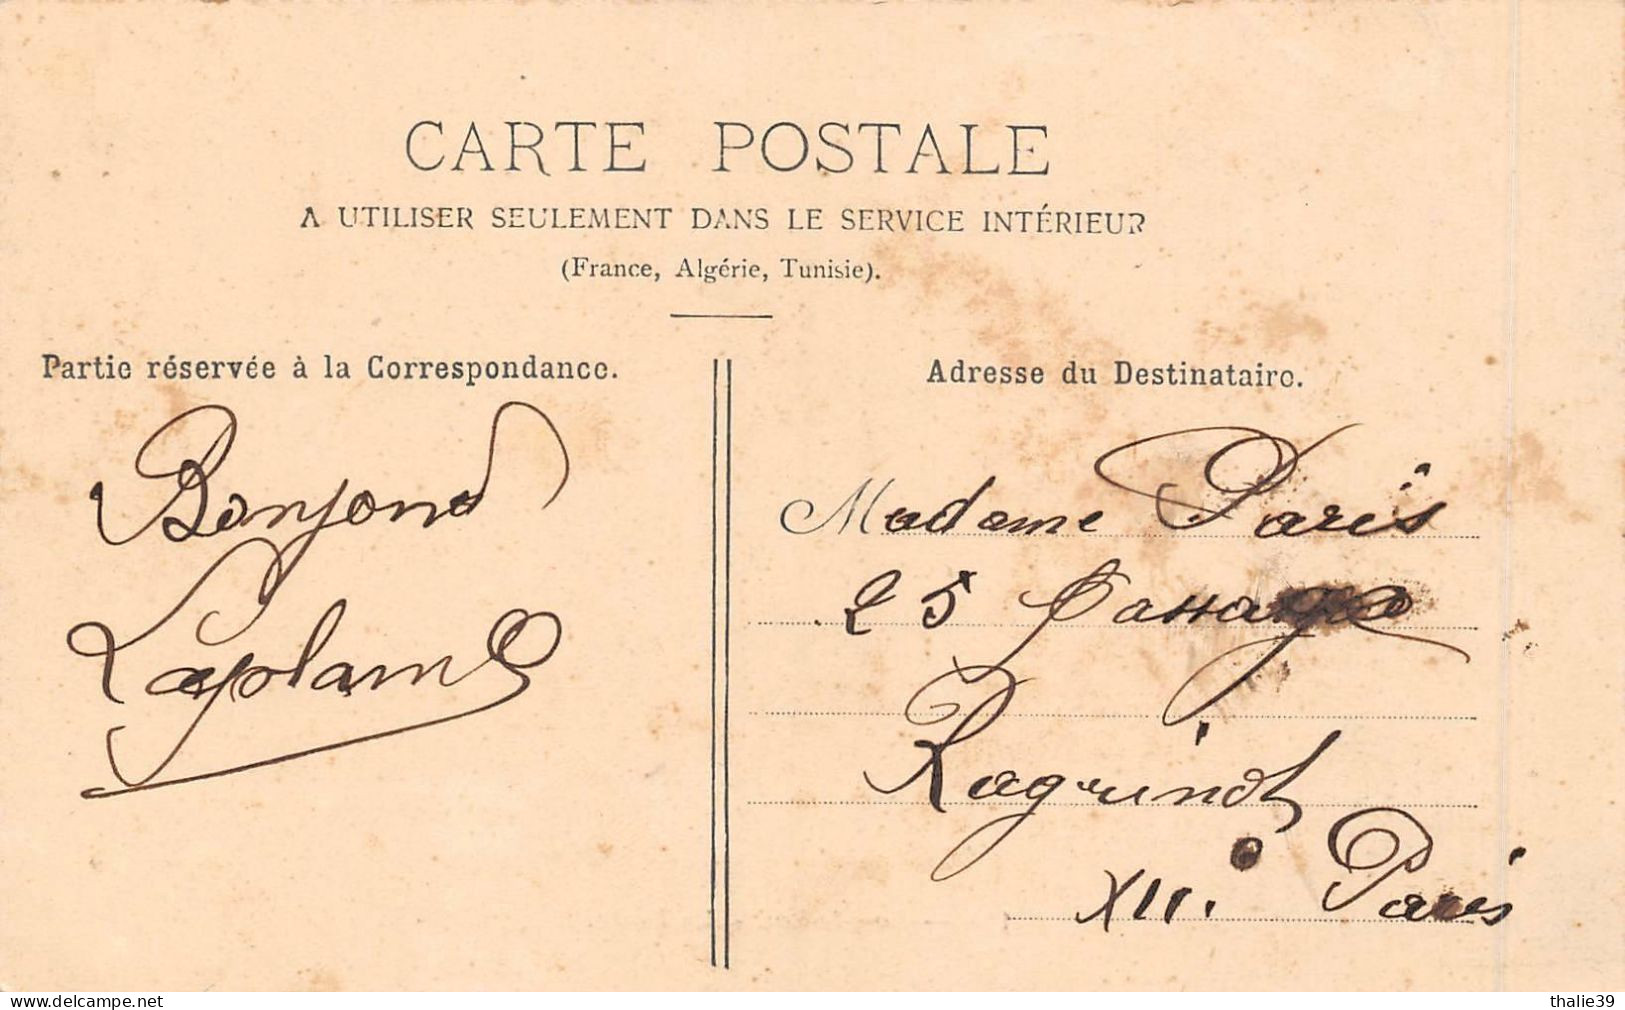 CARTE POSTALE
A UTILISER SEULEMENT DANS LE SERVICE INTÉRIEUR
(France, Algérie, Tunisie).
Partie réservée à la Correspondance.
Bonjond
Laplame
Adresse du Destinataire.
Madame Paris
25 Passage
Raguinot
XII. Paris
www.delcampe.net
thalie39